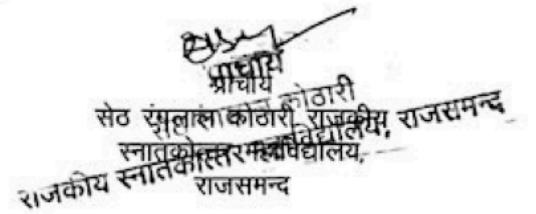 प्राचार्य
प्राचार्य
सेठ रंगलाल कोठारी राजकीय
स्नातकोत्तर महाविद्यालय,
राजसमन्द
कोठारी
राजकीय स्नातकोत्तर महाविद्यालय, राजसमन्द